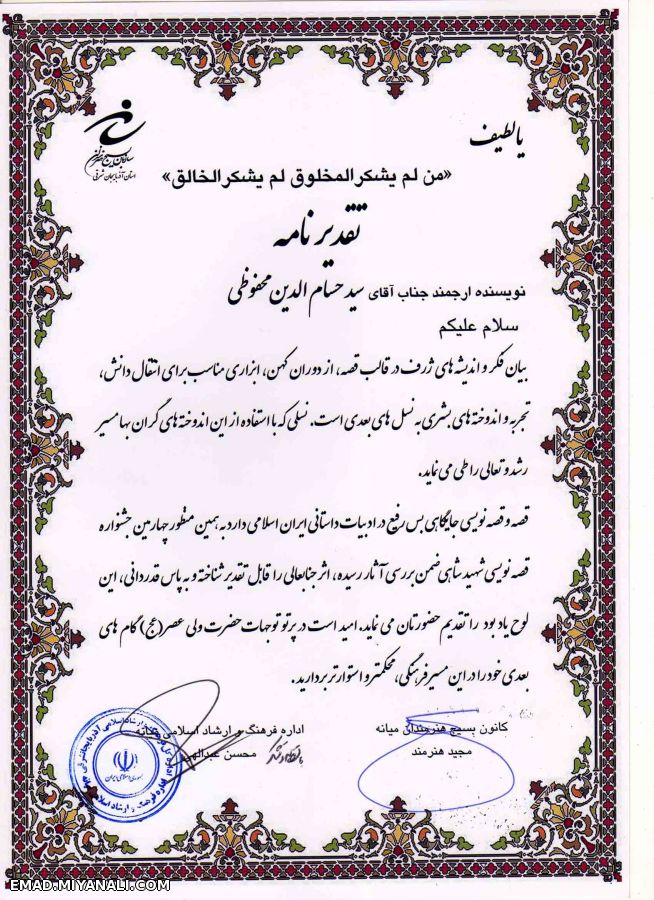 یا لطیف
«من لم یشکر المخلوق لم یشکر الخالق»
استان آذربایجان شرقی
تقدیر نامه
نویسنده ارجمند جناب آقای سید حسام الدین محفوظی
سلام علیکم
بیان فکر و اندیشه های ژرف در قالب قصه، از دوران کهن، ابزاری مناسب برای انتقال دانش،
تجربه و اندوخته های بشری به نسل های بعدی است. نسلی که با استفاده از این اندوخته های گران بها مسیر
رشد و تعالی را طی می نماید.
قصه و قصه نویسی جایگاهی بس رفیع در ادبیات داستانی ایران اسلامی دارد به همین منظور چهارمین جشنواره
قصه نویسی شهید شاهی ضمن بررسی آثار رسیده، اثر جنابعالی را قابل تقدیر شناخته و به پاس قدردانی، این
لوح یادبود را تقدیم حضورتان می نماید. امید است در پرتو توجهات حضرت ولی عصر(عج) گام های
بعدی خود را در این مسیر فرهنگی، محکمتر و استوارتر بردارید.
کانون بسیج هنرمندان میانه
مجید هنرمند
اداره فرهنگ و ارشاد اسلامی میانه
محسن
جمهوری اسلامی ایران
EMAD.MIYANALI.COM